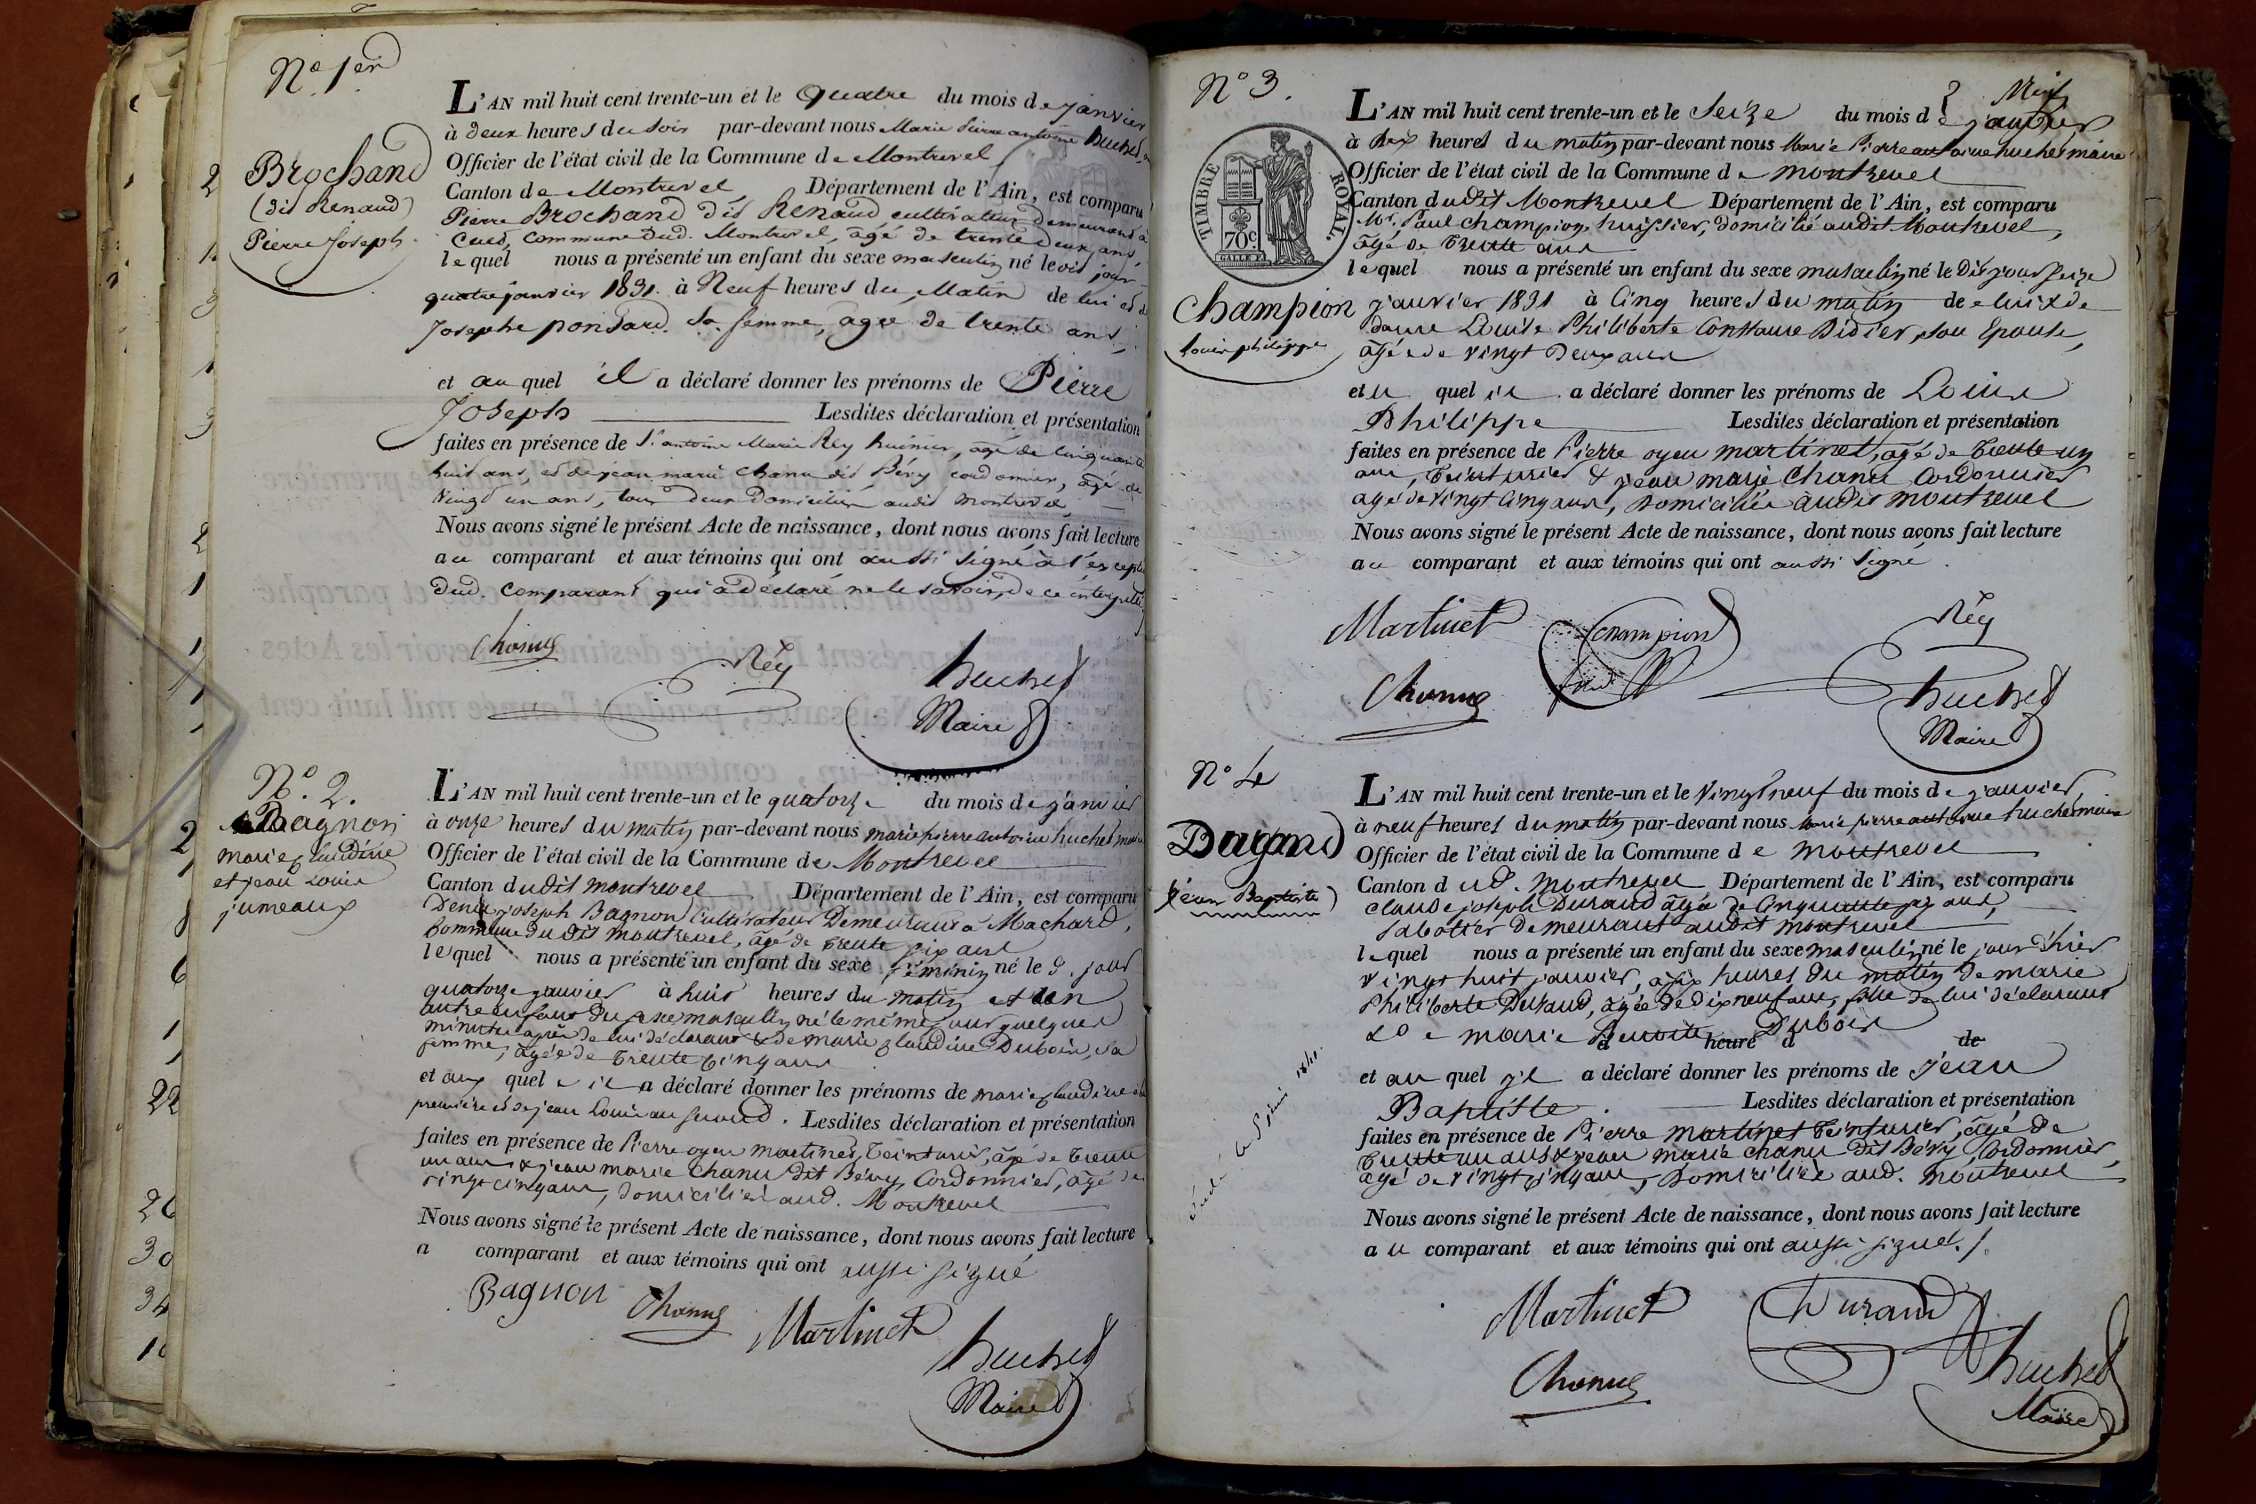 N.o 1er
Brochand
(dit Renaud)
Pierre Joseph.
L'AN mil huit cent trente-un et le quatre du mois de janvier
à deux heures du soir par-devant nous Marie Pierre antoine huchet
Officier de l'état civil de la Commune de Montrevel
Canton de Montrevel Département de l'Ain, est comparu
Pierre Brochand dit Renaud cultivateur demeurant à
Cued, commune dud. Montrevel, âgé de trente deux ans,
lequel nous a présenté un enfant du sexe masculin né le dit jour
quatre janvier 1831. à Neuf heures du Matin de lui et de
Josephe ponsard. Sa femme, agée de trente ans,
et au quel il a déclaré donner les prénoms de Pierre
Joseph Lesdites déclaration et présentation
faites en présence de Sr antoine Marie Rey huissier, âgé de cinquante
huit ans, et de jean marie Chanu dit Béry cordonnier, âgé de
vingt un ans, tous deux Domiciliés audit Montrevel,
Nous avons signé le présent Acte de naissance, dont nous avons fait lecture
au comparant et aux témoins qui ont aussi signé à l'excepté
dud. comparant qui a déclaré ne le savoir, de ce interpellé
Chanu
Rey
huchet
Maire
N.o 2.
Bagnon
marie claudine
et jean Louis
jumeaux
L'AN mil huit cent trente-un et le quatorze du mois de janvier
à onze heures du matin par-devant nous marie pierre antoine huchet maire
Officier de l'état civil de la Commune de Montrevel
Canton dudit montrevel Département de l'Ain, est comparu
Denis joseph Bagnon Cultivateur Demeurant a Machard,
Commune du dit montrevel, âgé de trente six ans
lequel nous a présenté un enfant du sexe féminin né le d. jour
quatorze janvier à huit heures du matin et un
autre enfant du sexe masculin né le même jour quelques
minutes après de lui déclarant & de marie claudine Dubois, sa
femme, âgée de trente cinq ans
et aux quels il a déclaré donner les prénoms de marie claudine à la
première et de jean Louis au second. Lesdites déclaration et présentation
faites en présence de Pierre oyen martinet, teinturier, âgé de trente
un ans & jean marie Chanu dit Béry, Cordonnier, âgé de
vingt cinq ans, domiciliés aud. Montrevel
Nous avons signé le présent Acte de naissance, dont nous avons fait lecture
a comparant et aux témoins qui ont aussi signé
Bagnon Chanu Martinet
huchet
Maire
N° 3.
TIMBRE ROYAL.
70c.
Champion
louis philippe
L'AN mil huit cent trente-un et le Seize du mois de janvier
à dix heures du matin par-devant nous Marie Pierre antoine huchet maire
Officier de l'état civil de la Commune de montrevel
Canton dudit Montrevel Département de l'Ain, est comparu
Mr. Paul Champion huissier, domicilié audit Montrevel,
âgé de trente ans
lequel nous a présenté un enfant du sexe masculin né le dit jour seize
janvier 1831 à Cinq heures du matin de lui & de
dame Louise Philiberte Constance Didier, son Epouse,
âgée de vingt deux ans
et u quel il a déclaré donner les prénoms de Louis
Philippe Lesdites déclaration et présentation
faites en présence de Pierre oyen martinet, agé de trente un
ans, teinturier & jean marie Chanu Cordonnier
agé de vingt cinq ans, domiciliés audit montrevel
Nous avons signé le présent Acte de naissance, dont nous avons fait lecture
au comparant et aux témoins qui ont aussi signé.
Martinet Champion Rey
Chanu
huchet
Maire
N° 4
Durand
(jean Baptiste)
L'AN mil huit cent trente-un et le vingt neuf du mois de janvier,
à neuf heures du matin par-devant nous Marie pierre antoine huchet maire
Officier de l'état civil de la Commune de montrevel
Canton d ud. Montrevel Département de l'Ain, est comparu
claude joseph Durand âgé de cinquante six ans,
Sabotier demeurant audit montrevel
lequel nous a présenté un enfant du sexe masculin né le jour d'hier
vingt huit janvier, à six heures du matin de marie
Philiberte Durand, agée de dix neuf ans, fille de lui déclarant
& de marie Benoite Dubois
à heure d de
et au quel il a déclaré donner les prénoms de jean
Baptiste. Lesdites déclaration et présentation
faites en présence de Pierre martinet teinturier, âgé de
trente un ans & jean marie chanu dit Béry, Cordonnier,
âgé de vingt cinq ans, Domiciliés aud. montrevel
Nous avons signé le présent Acte de naissance, dont nous avons fait lecture
au comparant et aux témoins qui ont aussi signé.
Martinet Durand
Chanu
huchet
Maire